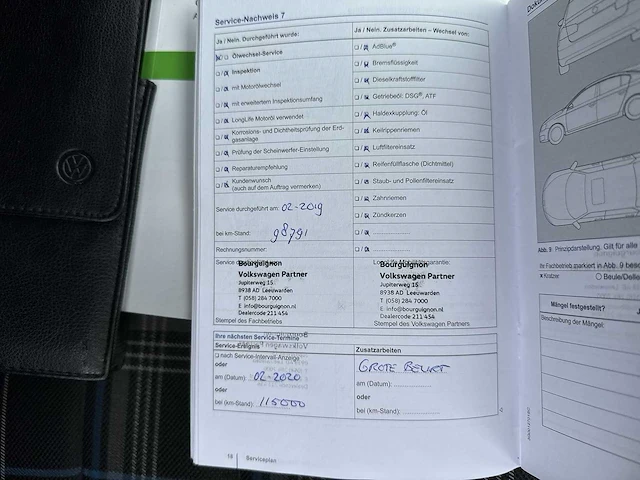 Service-Nachweis 7
Ja / Nein. Durchgeführt wurde:
Ölwechsel-Service
Inspektion
mit Motorölwechsel
mit erweitertem Inspektionsumfang
LongLife Motoröl verwendet
Korrosions- und Dichtheitsprüfung der Erd-
gasanlage
Prüfung der Scheinwerfer-Einstellung
Reparaturempfehlung
Kundenwunsch
(auch auf dem Auftrag vermerken)
Service durchgeführt am: 02-2019
bei km-Stand: 98791
Rechnungsnummer:
Bourguignon
Volkswagen Partner
Jupiterweg 15
8938 AD Leeuwarden
T (058) 284 7000
E info@bourguignon.nl
Dealercode 211 454
Stempel des Fachbetriebs
Ja / Nein. Zusatzarbeiten – Wechsel von:
AdBlue®
Bremsflüssigkeit
Dieselkraftstofffilter
Getriebeöl: DSG®, ATF
Haldexkupplung: Öl
Keilrippenriemen
Luftfiltereinsatz
Reifenfüllflasche (Dichtmittel)
Staub- und Pollenfiltereinsatz
Zahnriemen
Zündkerzen
Bourguignon
Volkswagen Partner
Jupiterweg 15
8938 AD Leeuwarden
T (058) 284 7000
E info@bourguignon.nl
Dealercode 211 454
Stempel des Volkswagen Partners
Ihre nächsten Service-Termine
Service-Ereignis
nach Service-Intervall-Anzeige
oder
am (Datum): 02-2020
oder
bei (km-Stand): 115000
Zusatzarbeiten
GROTE BEURT
am (Datum):
oder
bei (km-Stand):
18 Serviceplan
Abb. 9 Prinzipdarstellung. Gilt für alle
Ihr Fachbetrieb markiert in Abb. 9
x Kratzer
Beule/Delle
Mängel festgestellt?
Beschreibung der Mängel: